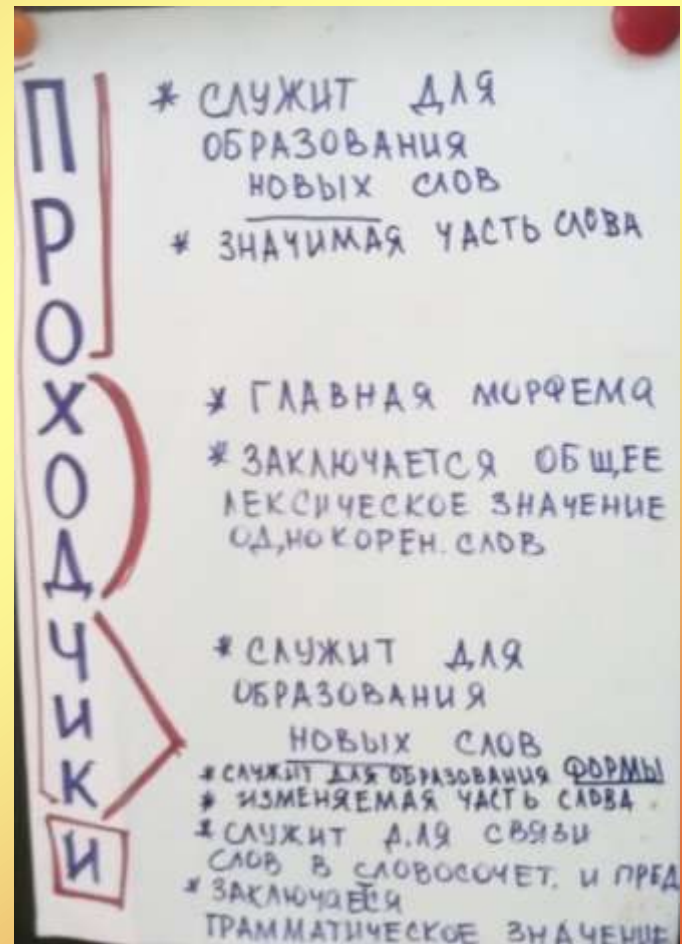 ПРОХОДЧИКИ
* СЛУЖИТ ДЛЯ
ОБРАЗОВАНИЯ
НОВЫХ СЛОВ
* ЗНАЧИМАЯ ЧАСТЬ СЛОВА
* ГЛАВНАЯ МОРФЕМА
* ЗАКЛЮЧАЕТСЯ ОБЩЕЕ
ЛЕКСИЧЕСКОЕ ЗНАЧЕНИЕ
ОДНОКОРЕН. СЛОВ
* СЛУЖИТ ДЛЯ
ОБРАЗОВАНИЯ
НОВЫХ СЛОВ
* СЛУЖИТ ДЛЯ ОБРАЗОВАНИЯ ФОРМЫ
* ИЗМЕНЯЕМАЯ ЧАСТЬ СЛОВА.
* СЛУЖИТ ДЛЯ СВЯЗИ
СЛОВ В СЛОВОСОЧЕТ. И ПРЕД
* ЗАКЛЮЧАЕТСЯ
ГРАММАТИЧЕСКОЕ ЗНАЧЕНИЕ